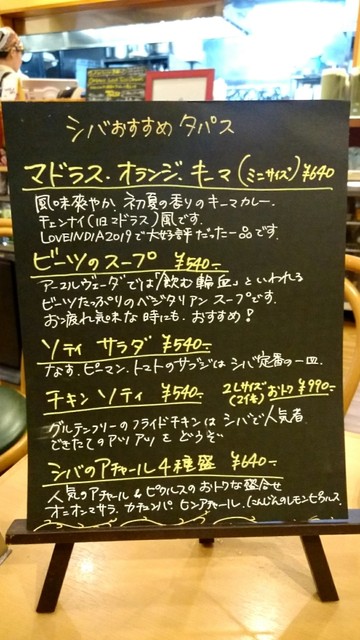 シバおすすめ タパス
マドラス・オランジ・キーマ (ミニサイズ) ¥640
風味爽やか 初夏の香りのキーマカレー。
チェンナイ(旧マドラス)風です。
LOVEINDIA2019で大好評だった一品です。
ビーツのスープ ¥540-
アーユルヴェーダでは「飲む輸血」といわれる
ビーツたっぷりのベジタリアンスープです。
お疲れ気味な時にも、おすすめ!
ソティ サラダ ¥540-
なす、ピーマン、トマトのサブジは シバ定番の一皿。
チキン ソティ ¥540- 2Lサイズ(2倍)おトク ¥990-
グルテンフリーのフライドチキンは シバで人気者
できたてのアツアツを どうぞ
シバのアチャール4種盛 ¥640-
人気のアチャール&ピクルスのおトクな盛合せ
オニオンマサラ、カチュンバ、ヒンアチャール、にんじんのレモンピクルス